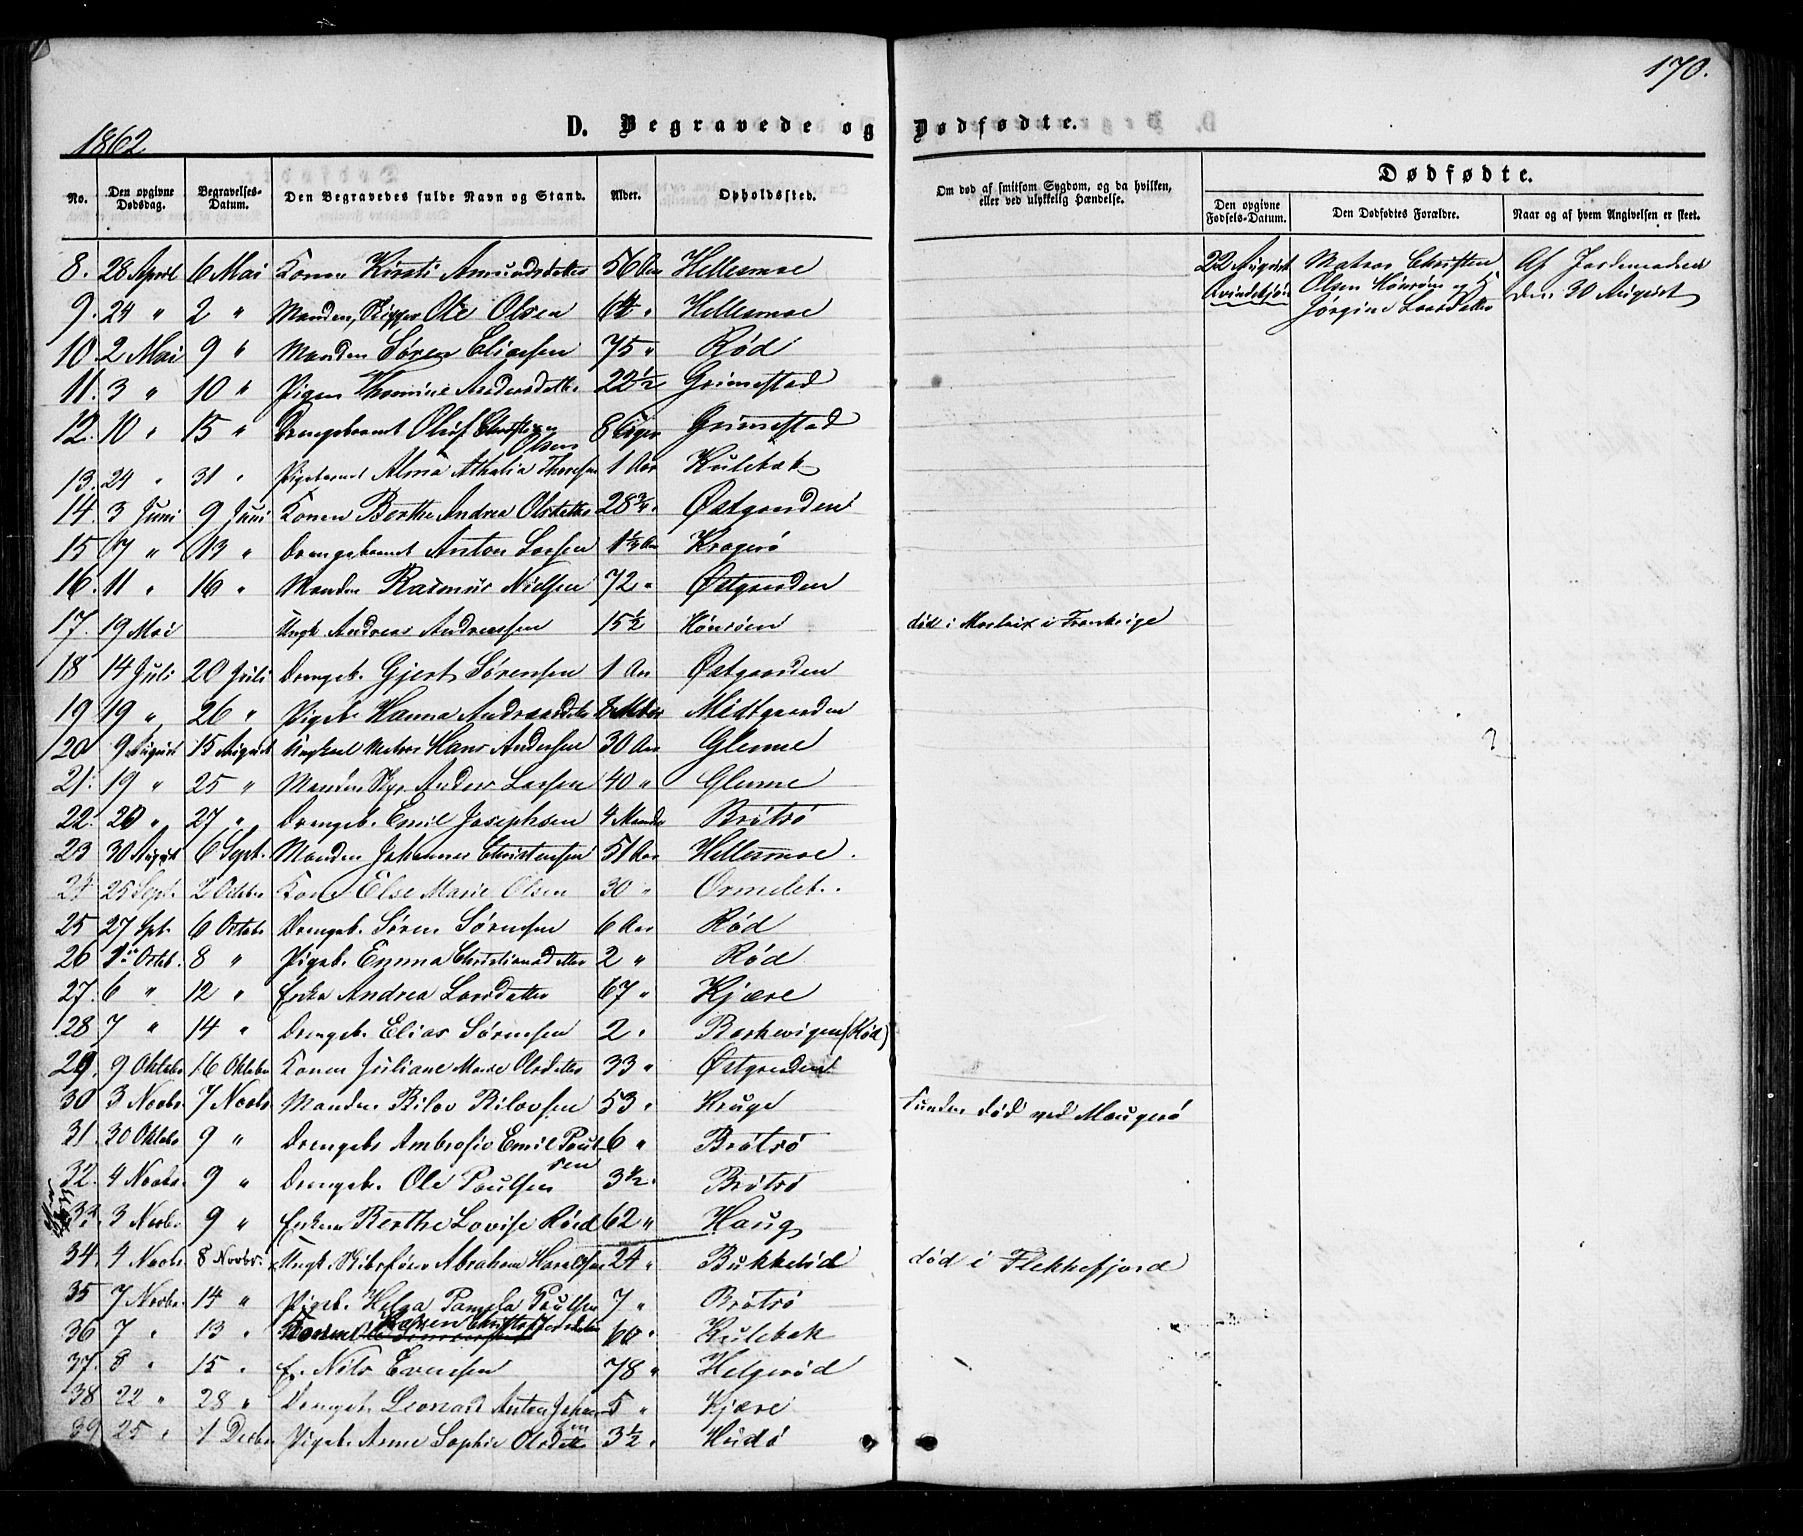 170.
1862
D. Begravede og Dødfødte.
No. Den opgivne Dødsdag. Begravelses-Datum. Den Begravedes fulde Navn og Stand. Alder. Opholdssted. Om død af smitsom Sygdom, og da hvilken, eller ved ulykkelig Hændelse. Dødfødte.
Den opgivne Fødsels-Datum. Den Dødfødtes Forældre. Naar og af hvem Angivelsen er skeet.
8. 28 April 6 Mai Konen Kirsti Amundsdatter 56 Aar Hellesmoe 22 August Matros Christen Af Jordemoderen
Qvindekjøn Olsen Hønsøen og den 30 August
9. 24 " 2 " Manden, Skipper Ole Olsen 64 " Hellesmoe Jørgine Larsdatter
10. 2 Mai 9 " Manden Søren Eliassen 75 " Rød
11. 3 " 10 " Pigen Thomine Andersdatter 22 1/2 Grimestad
12. 10 " 15 " Drengebarnet Oluf Christian 8 Uger Grimestad
Olsen
13. 24 " 31 " Pigebarnet Alma Athalia Thoresen 1 Aar Kulebak
14. 3 Juni 9 Juni Konen Berthe Andrea Olsdatter 28 3/4 " Østgaarden
15 7 " 13 " Drengebarnet Anton Larsen Aar Kragerø
16. 11 " 16 " Manden Rasmus Nielsen 72 " Østgaarden
17. 19 Mai Ungk. Andreas Andreassen 15 1/2 Hønsøen død i Morlaix i Frankrige
18 14 Juli 20 Juli Drengeb. Gjert Sørensen 1 Aar Østgaarden
19 19 " 26 " Pigeb. Hanna Andreasdatter 8 Mdr Midtgaarden
20 9 August 15 August Ungkarl Matros Hans Andersen 30 Aar Glenne
21. 19 " 25 " Manden Skpr Anders Larsen 40 " Glenne
22. 20 " 27 " Drengeb. Emil Josephsen 4 Maander Brøtsø
23 30 August 6 Sept. Manden Johannes Christensen 51 Aar Hellesmoe.
24. 25 Sept. 2 October Kone Else Marie Olsen 30 " Ormelet.
25 27 Spt. 6 Octobr Drengeb. Søren Sørensen 6 Aar Rød
26 1ste Octob. 8 " Pigeb. Emma Christiansdatter 2 " Rød
27. 6 " 12 " Enke Andrea Larsdatter 67 " Kjære
28 7 " 14 " Drengeb. Elias Sørensen 2 " (Rød)
29. 9 Oktobr 16 Oktober Konen Juliane Marie Olsdatter 33 " Østgaarden
30 3 Novbr. 7 Novbr. Manden Rilov Rilovsen 53 " Kruge funden død ved Maugerø
31. 30 Oktobr 9 " Drengeb. Ambrosio Emil Poul- 6 " Brøtsø
sen
32. 4 Novbr. 9 " Drengeb. Ole Poulsen 3 1/2 " Brøtsø
33. 3 Novbr. 9 " Enken Berthe Lovise Røed 62 " Haug
34. 4 Novbr 8 Novbr. Ungk. Skibsfører Abraham Haraldsen 24 " Bukkelid død i Flekkefjord
35 7 Novbr. 14 " Pigeb. Helga Pamela Poulsen 7 " Brøtsø
36 7 " 13 " Konen Karen Christoffersdatter 60 " Kulebak
37. 8 " 15 " E. Nils Evensen 78 " Helgerød
38 22 " 28 " Drengeb. Leonard Anton Johan- 5 " Kjære
sen
39 25 " 1 Decbr Pigeb. Anne Sophie Olsdatter 3 1/2 " Hudø